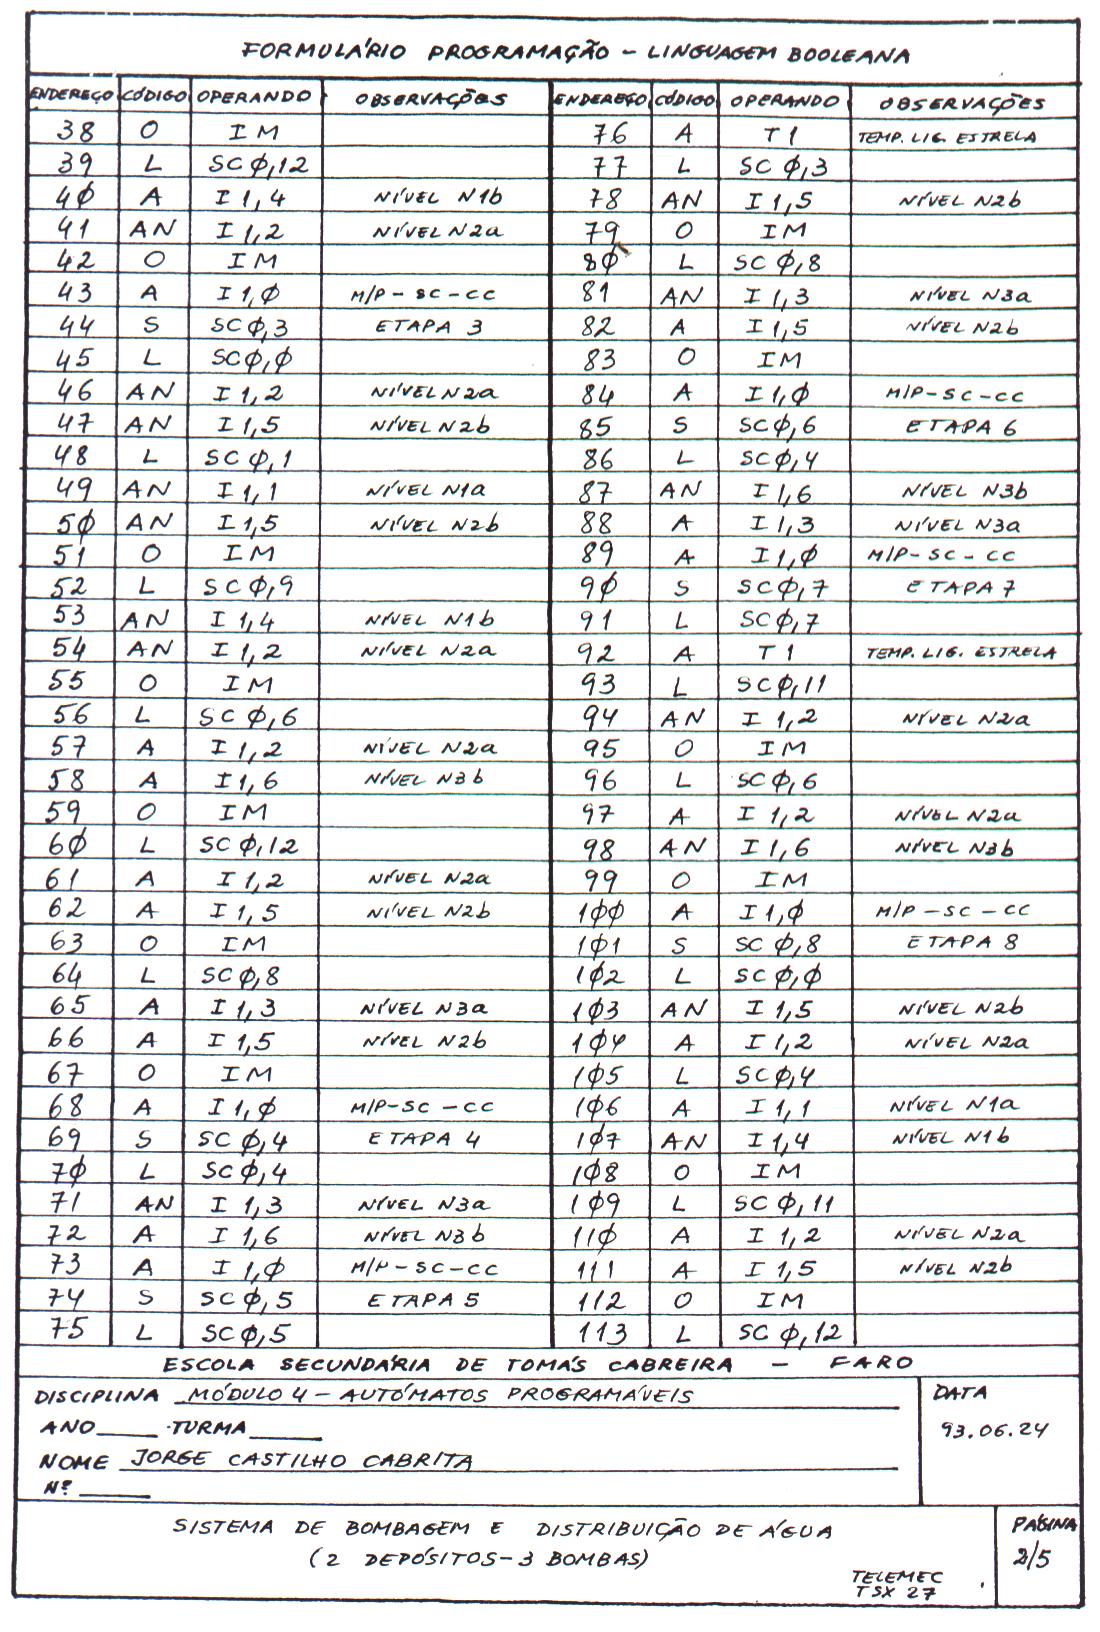 FORMULÁRIO PROGRAMAÇÃO - LINGUAGEM BOOLEANA
ENDEREÇO CÓDIGO OPERANDO OBSERVAÇÕES
38 O IM
39 L SCΦ,12
4Φ A I1,4 NÍVEL N1b
41 AN I1,2 NÍVEL N2a
42 O IM
43 A I1,Φ M/P-SC-CC
44 S SCΦ,3 ETAPA 3
45 L SCΦ,Φ
46 AN I1,2 NÍVEL N2a
47 AN I1,5 NÍVEL N2b
48 L SCΦ,1
49 AN I1,1 NÍVEL N1a
5Φ AN I1,5 NÍVEL N2b
51 O IM
52 L SCΦ,9
53 AN I1,4 NÍVEL N1b
54 AN I1,2 NÍVEL N2a
55 O IM
56 L SCΦ,6
57 A I1,2 NÍVEL N2a
58 A I1,6 NÍVEL N3b
59 O IM
6Φ L SCΦ,12
61 A I1,2 NÍVEL N2a
62 A I1,5 NÍVEL N2b
63 O IM
64 L SCΦ,8
65 A I1,3 NÍVEL N3a
66 A I1,5 NÍVEL N2b
67 O IM
68 A I1,Φ M/P-SC-CC
69 S SCΦ,4 ETAPA 4
7Φ L SCΦ,4
71 AN I1,3 NÍVEL N3a
72 A I1,6 NÍVEL N3b
73 A I1,Φ M/P-SC-CC
74 S SCΦ,5 ETAPA 5
75 L SCΦ,5
ENDEREÇO CÓDIGO OPERANDO OBSERVAÇÕES
76 A T1 TEMP. LIG. ESTRELA
77 L SCΦ,3
78 AN I1,5 NÍVEL N2b
79 O IM
8Φ L SCΦ,8
81 AN I1,3 NÍVEL N3a
82 A I1,5 NÍVEL N2b
83 O IM
84 A I1,Φ M/P-SC-CC
85 S SCΦ,6 ETAPA 6
86 L SCΦ,4
87 AN I1,6 NÍVEL N3b
88 A I1,3 NÍVEL N3a
89 A I1,Φ M/P-SC-CC
9Φ S SCΦ,7 ETAPA 7
91 L SCΦ,7
92 A T1 TEMP. LIG. ESTRELA
93 L SCΦ,11
94 AN I1,2 NÍVEL N2a
95 O IM
96 L SCΦ,6
97 A I1,2 NÍVEL N2a
98 AN I1,6 NÍVEL N3b
99 O IM
1ΦΦ A I1,Φ M/P-SC-CC
1Φ1 S SCΦ,8 ETAPA 8
1Φ2 L SCΦ,Φ
1Φ3 AN I1,5 NÍVEL N2b
1Φ4 A I1,2 NÍVEL N2a
1Φ5 L SCΦ,4
1Φ6 A I1,1 NÍVEL N1a
1Φ7 AN I1,4 NÍVEL N1b
1Φ8 O IM
1Φ9 L SCΦ,11
11Φ A I1,2 NÍVEL N2a
111 A I1,5 NÍVEL N2b
112 O IM
113 L SCΦ,12
ESCOLA SECUNDÁRIA DE TOMÁS CABREIRA - FARO
DISCIPLINA MÓDULO 4 - AUTÓMATOS PROGRAMÁVEIS
ANO_____ TURMA_____
NOME JORGE CASTILHO CABRITA
Nº_____
DATA
93.06.24
SISTEMA DE BOMBAGEM E DISTRIBUIÇÃO DE ÁGUA
(2 DEPÓSITOS-3 BOMBAS)
TELEMEC
TSX 27
PÁGINA
2/5